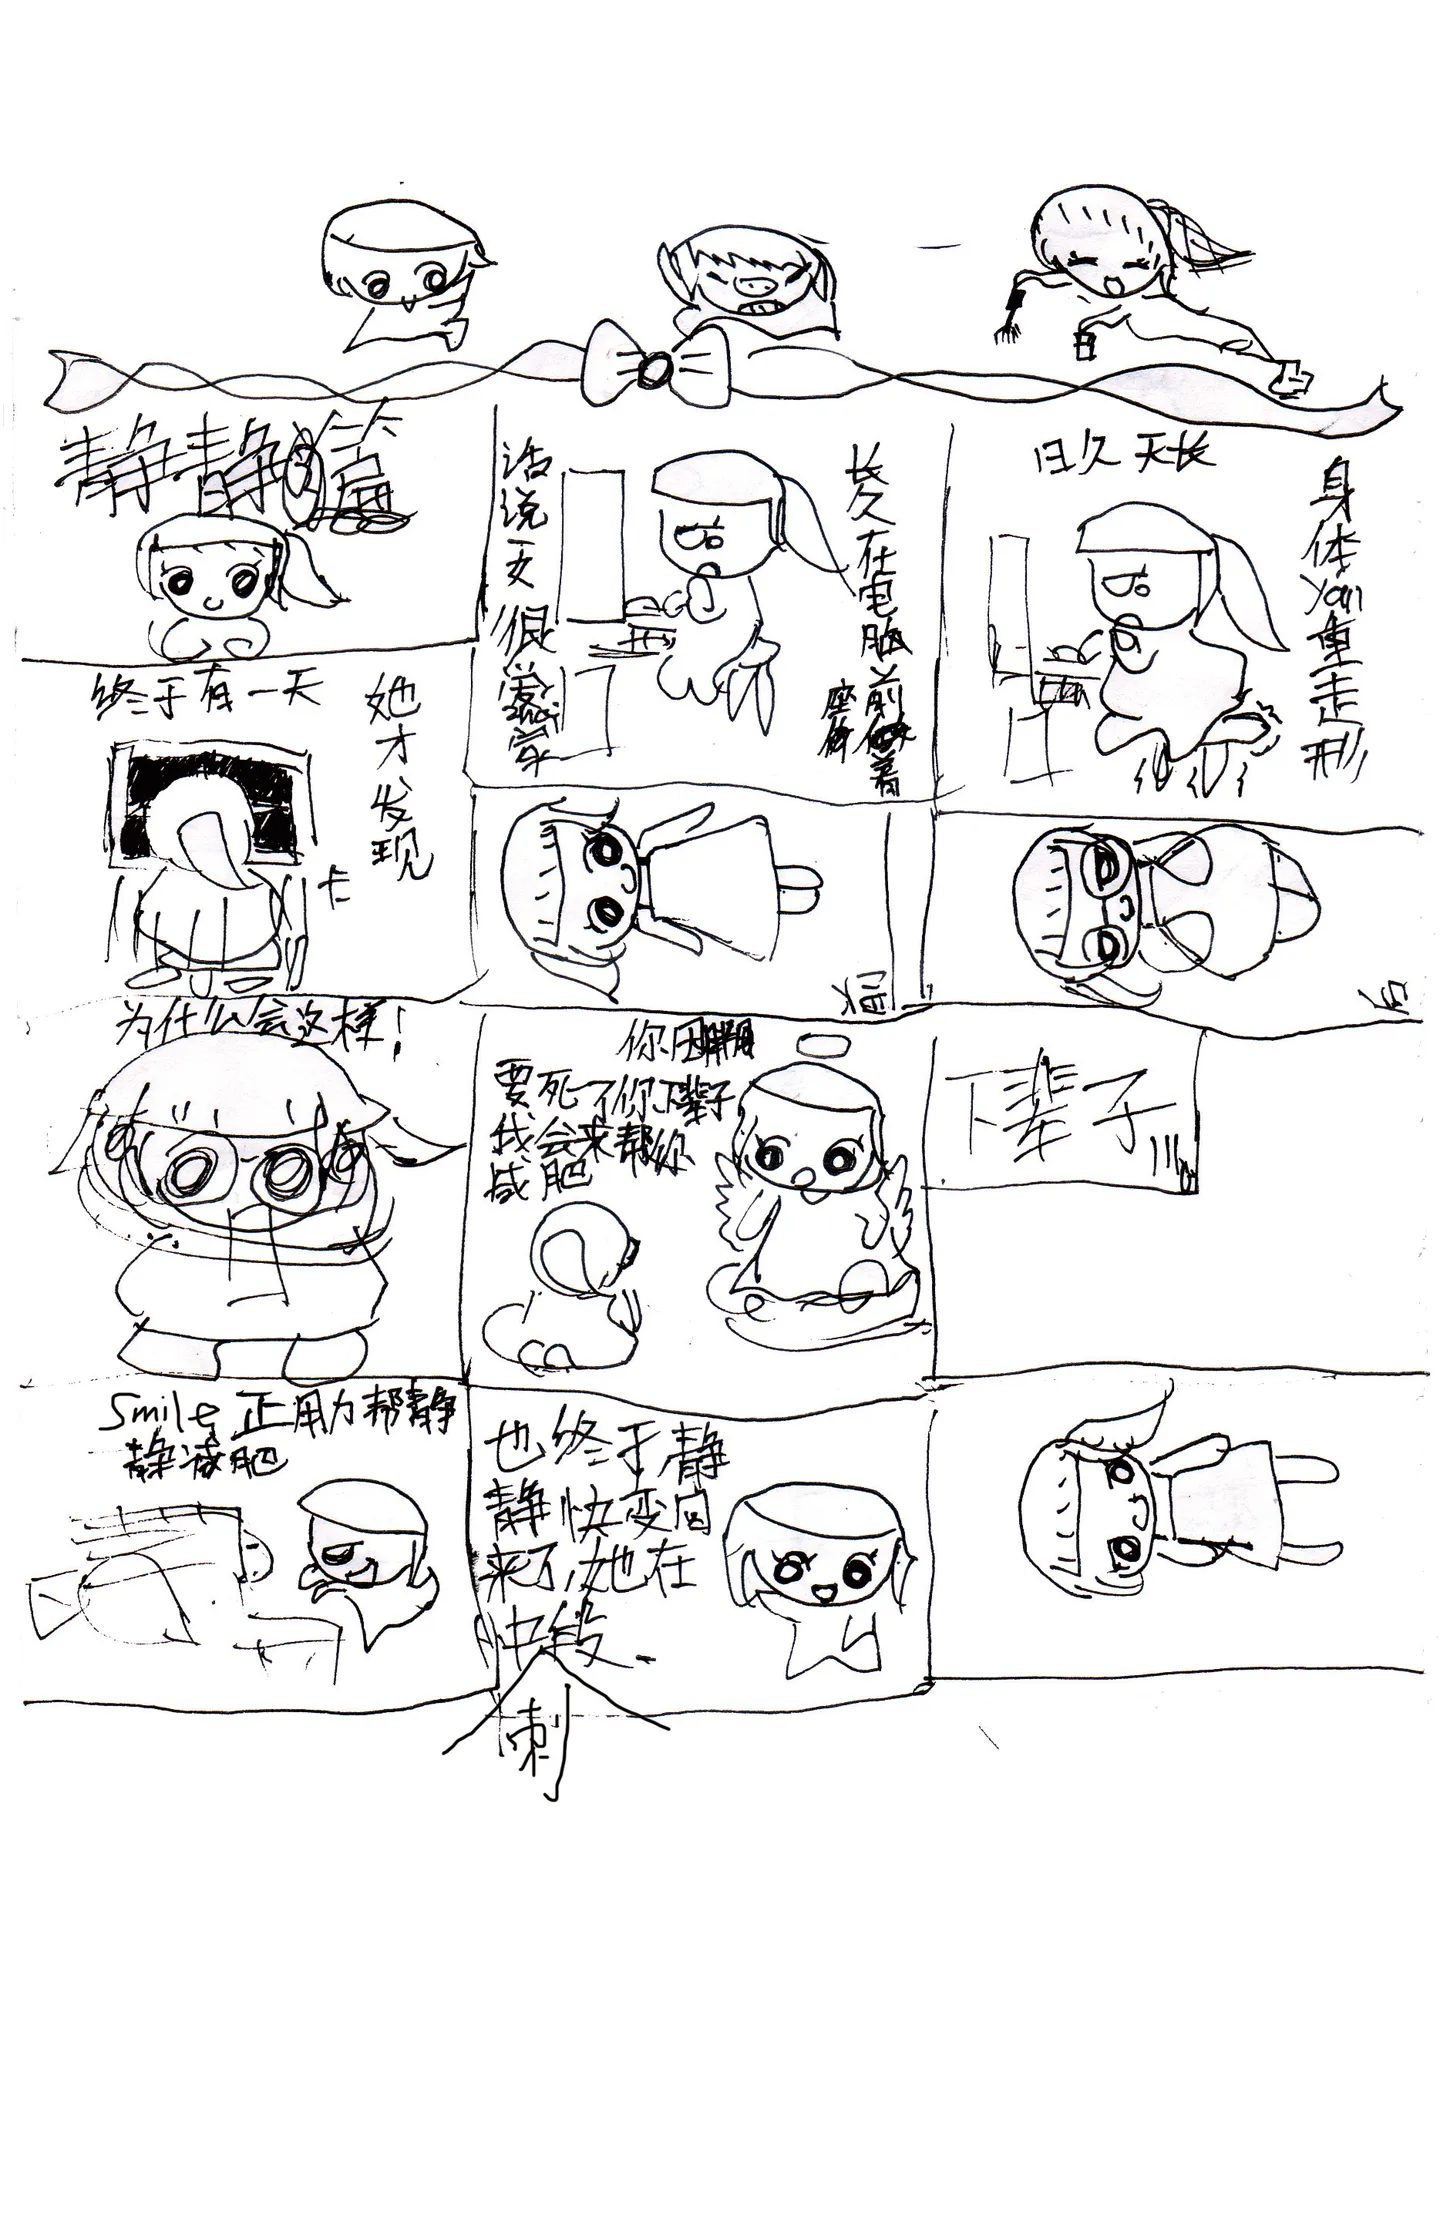 静静篇
话说女很
zhai家
长久在电脑前
座着
日久天长
身体yan重走形
终于有一天
她才发现
卡
为什么会这样!
你因
要死了你下辈子
我会来帮你
减肥
下辈子
Smile正用力帮静
静减肥
也终于静
静快变回
来了,她在
冲段.
刺